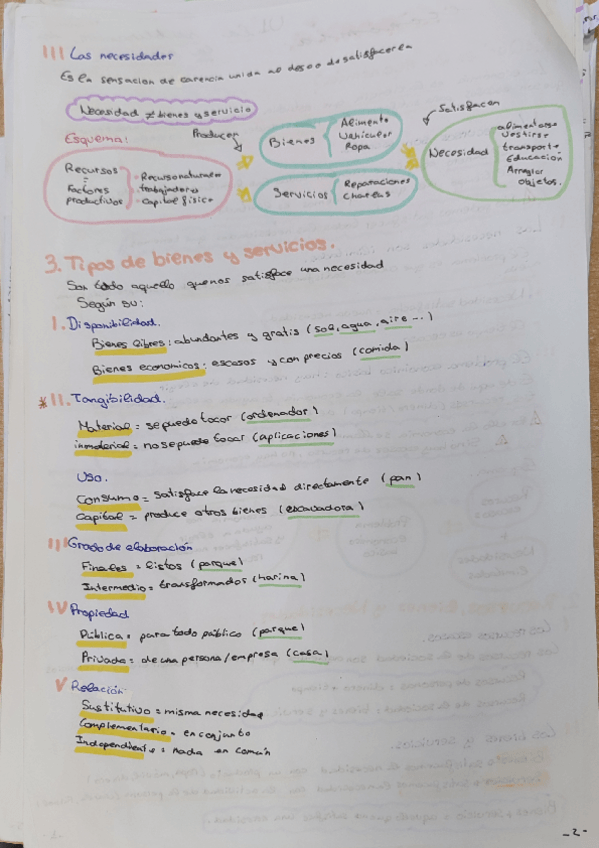 III Las necesidades
Es la sensacion de carencia unida al deseo de satisfacerla
Necesidad ≠ bienes y servicio
Esquema:
Producen
Satisfacen
Recursos
=
Factores
productivos
• Recurso naturales
• trabajadores
• Capital físico
Bienes
Alimento
Vehículos
Ropa
Servicios
Reparaciones
Charlas
Necesidad
alimentarse
Vestirse
transporte
Educación
Arreglar
objetos.
3. Tipos de bienes y servicios.
Son todo aquello que nos satisface una necesidad
Según su:
I. Disponibilidad.
Bienes libres: abundantes y gratis (sol, agua, aire...)
Bienes economicos: escasos y con precios (comida)
*II. Tangibilidad.
Material = se puede tocar (ordenador)
inmaterial = no se puede tocar (aplicaciones)
Uso.
Consumo = satisface la necesidad directamente (pan)
Capital = produce otros bienes (escavadora)
III Grado de elaboración
Finales = listos (parque)
Intermedio = transformados (harina)
IV Propiedad
Pública = para todo público (parque)
Privada = de una persona/empresa (casa)
V Relación.
Sustitutivo = misma necesidad
Complementario = en conjunto
Independiente = nada en común
-2-